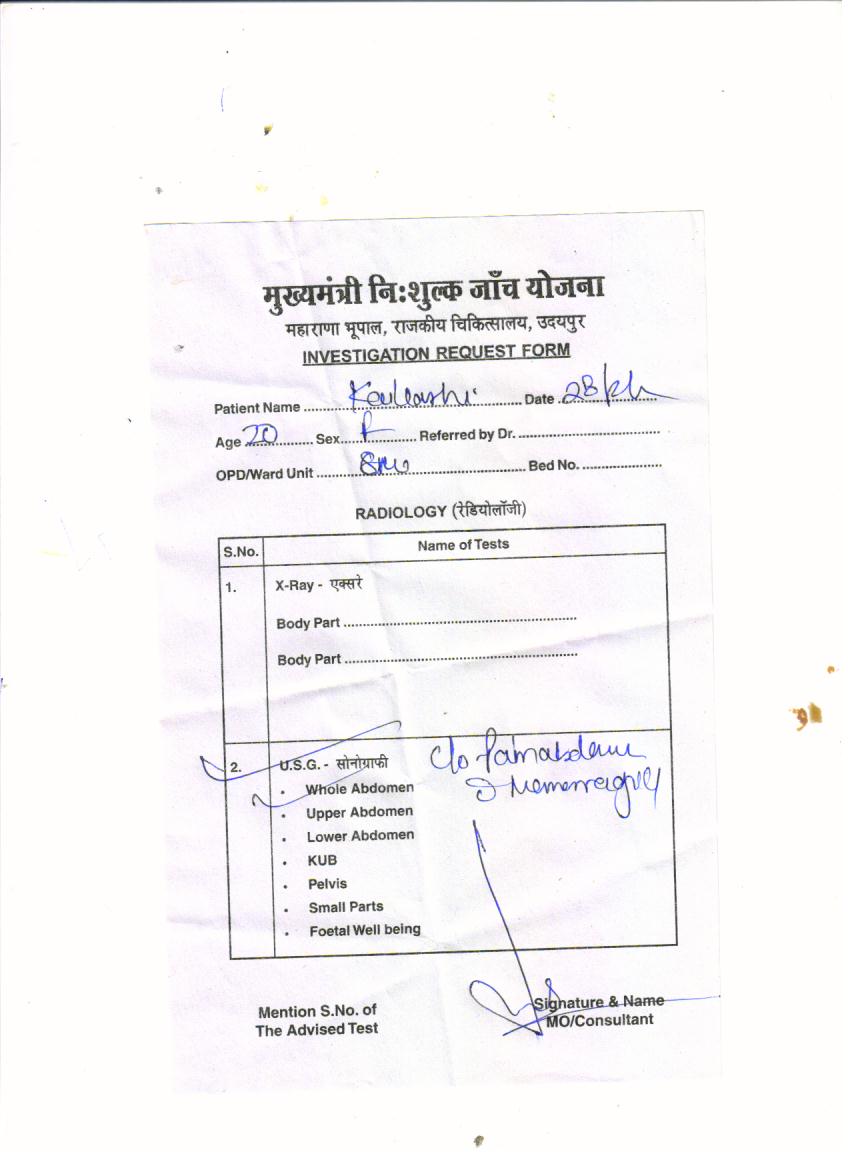 मुख्यमंत्री नि:शुल्क जाँच योजना
महाराणा भूपाल, राजकीय चिकित्सालय, उदयपुर
INVESTIGATION REQUEST FORM
Patient Name .......... Date ..........
Age .......... Sex.......... Referred by Dr. ..........
OPD/Ward Unit .......... Bed No. ..........
RADIOLOGY (रेडियोलॉजी)
S.No. Name of Tests
1. X-Ray - एक्सरे
Body Part ..........
Body Part ..........
2. U.S.G. - सोनोग्राफी c/o
• Whole Abdomen
• Upper Abdomen
• Lower Abdomen
• KUB
• Pelvis
• Small Parts
• Foetal Well being
Mention S.No. of
The Advised Test
Signature & Name
MO/Consultant